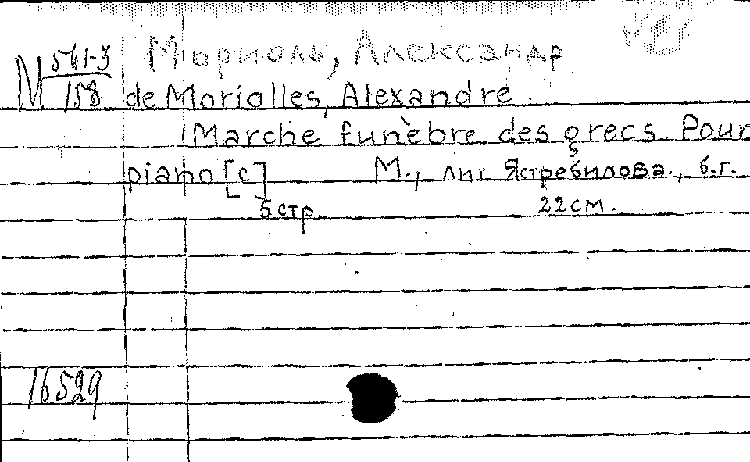 М 561-3/158 Мориоль, Александр
de Moriolles, Alexandre
Marche funèbre des grecs. Pour
piano [c] М., лит. Ястребилова., б.г.
5 стр. 22 см.
16529